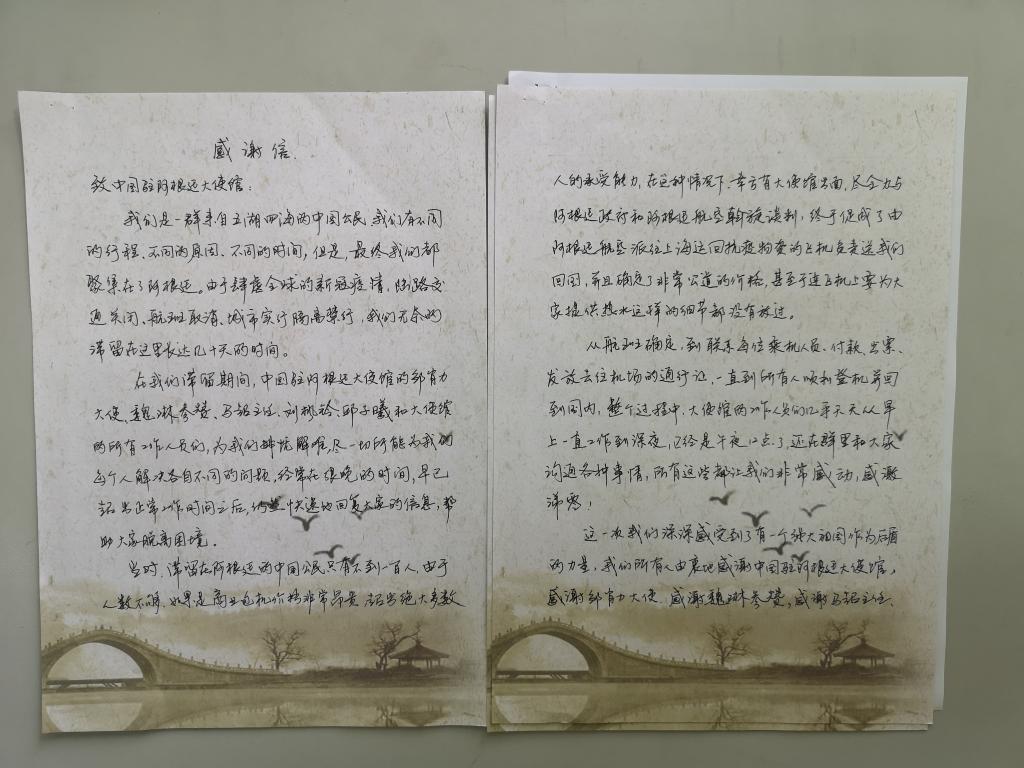 感谢信.
致中国驻阿根廷大使馆：
我们是一群来自五湖四海的中国公民，我们有不同
的行程、不同的原因、不同的时间，但是，最终我们都
聚集在了阿根廷。由于肆虐全球的新冠疫情，陆路交
通关闭、航班取消、城市实行隔离禁行，我们无奈的
滞留在这里长达几十天的时间。
在我们滞留期间，中国驻阿根廷大使馆的邹肖力
大使，魏琳参赞、马铭主任、刘彬裕、邱子曦和大使馆
的所有工作人员们，为我们排忧解难，尽一切所能为我们
每个人解决各自不同的问题，经常在很晚的时间，早已
超出正常工作时间之后，快速地回复大家的信息，帮
助大家脱离困境。
当时，滞留在阿根廷的中国公民只有不到一百人，由于
人数不够，如果是商业包机价格非常昂贵，超出绝大多数
人的承受能力，在这种情况下，幸亏有大使馆出面，尽全力与
阿根廷政府和阿根廷航空斡旋谈判，终于促成了由
阿根廷航空派往上海运回抗疫物资的飞机负责送我们
回国，并且确定了非常公道的价格，甚至于连飞机上要为大
家提供热水这样的细节都没有放过。
从航班确定，到联系每位乘机人员、付款、出票、
发放去往机场的通行证，一直到所有人顺利登机并回
到国内，整个过程中，大使馆的工作人员们几乎天天从早
上一直工作到深夜，已经是午夜12点了，还在群里和大家
沟通各种事情，所有这些都让我们非常感动，感激
涕零！
这一次我们深深感受到了有一个强大祖国作为后盾
的力量，我们所有人由衷地感谢中国驻阿根廷大使馆，
感谢邹肖力大使，感谢魏琳参赞，感谢马铭主任、